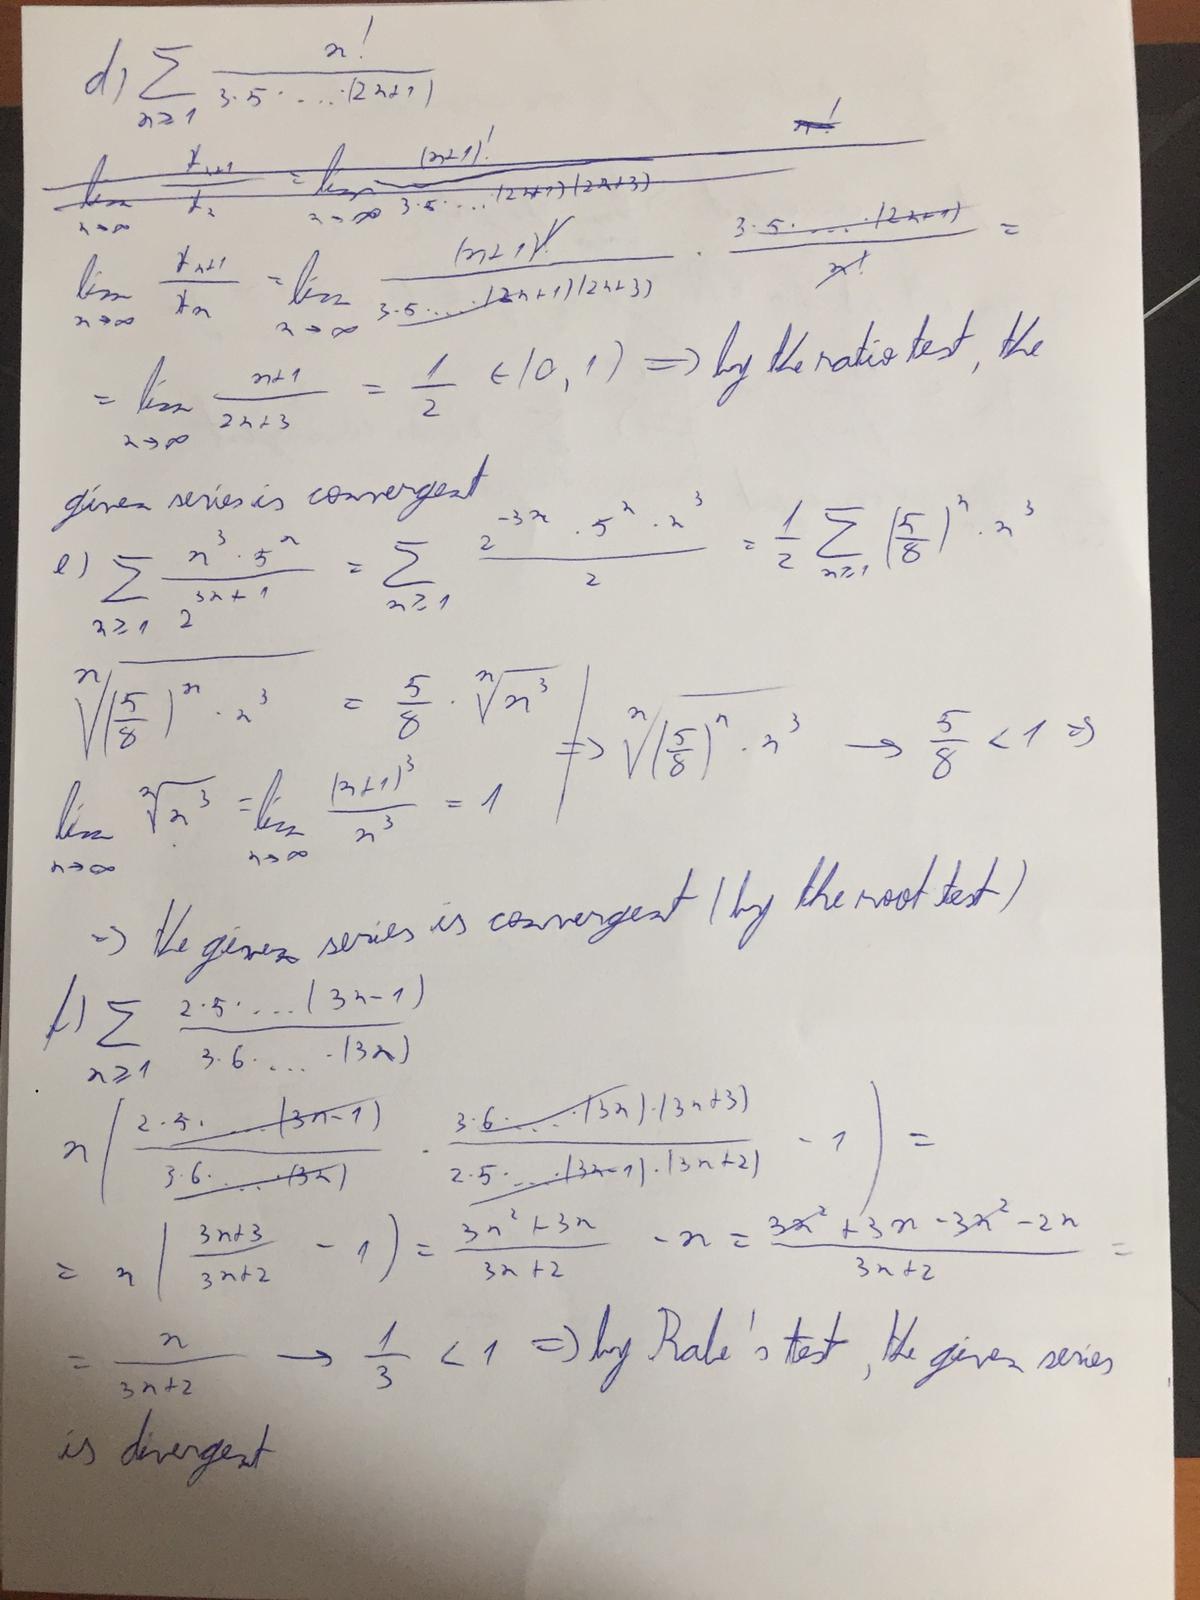 d) ∑_{n≥1} n! / (3·5·...·(2n+1))
lim_{n→∞} x_{n+1}/x_n = lim_{n→∞} (n+1)! / (3·5·...(2n+1)(2n+3)) n!
lim_{n→∞} x_{n+1}/x_n = lim_{n→∞} (n+1)! / (3·5·...(2n+1)(2n+3)) · (3·5·...·(2n+1)) / n! =
= lim_{n→∞} (n+1)/(2n+3) = 1/2 ∈ (0,1) => by the ratio test, the
given series is convergent
e) ∑_{n≥1} (n^3·5^n) / 2^{3n+1} = ∑_{n≥1} (2^{-3n}·5^n·n^3) / 2 = 1/2 ∑_{n≥1} (5/8)^n · n^3
ⁿ√((5/8)^n · n^3) = 5/8 · ⁿ√(n^3) => ⁿ√((5/8)^n · n^3) → 5/8 < 1 =>
lim_{n→∞} ⁿ√(n^3) = lim_{n→∞} (n+1)^3 / n^3 = 1
=> the given series is convergent (by the root test)
f) ∑_{n≥1} (2·5·...(3n-1)) / (3·6·...·(3n))
n( (2·5·...(3n-1)) / (3·6·...(3n)) · (3·6·...·(3n)·(3n+3)) / (2·5·...·(3n-1)·(3n+2)) - 1 ) =
= n( (3n+3)/(3n+2) - 1 ) = (3n^2+3n)/(3n+2) - n = (3n^2+3n-3n^2-2n)/(3n+2) =
= n/(3n+2) → 1/3 < 1 => by Rabe's test, the given series
is divergent